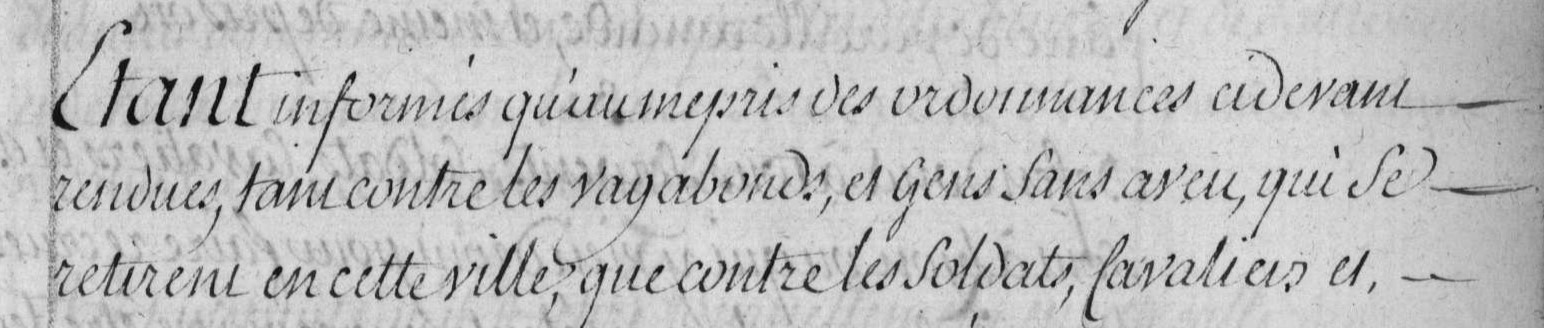 Etant informés qu'au mepris des ordonnances cidevant
rendues, tant contre les vagabonds, et Gens Sans aveu, qui Se
retirent en cette ville, que contre les Soldats, Cavaliers et,